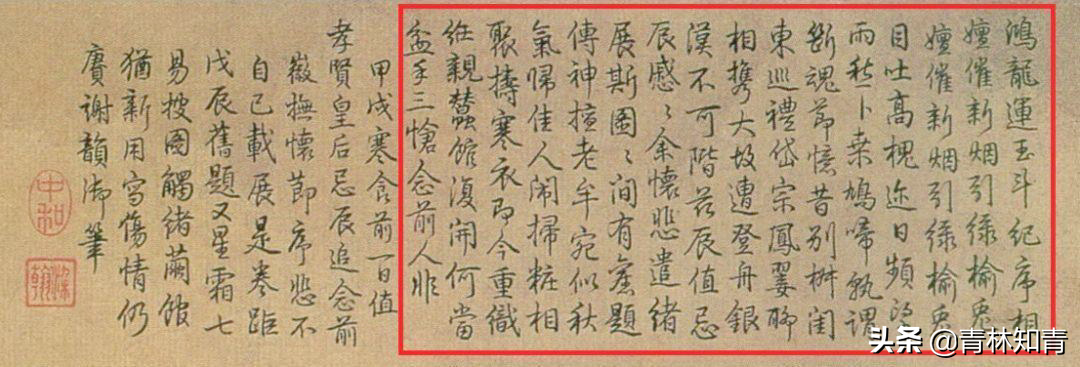 鴻龍運玉斗紀序相
嬗催新烟引緑榆兎
嬗催新烟引緑榆兎
目吐高槐迩日頻
雨愁卜桒鳩啼孰謂
斷魂節憶昔別椒閨
東巡禮岱宗鳳翣聊
相攜大故遭登舟銀
漢不可階茲辰值忌
辰感〻余懷悲遣緒
展斯圖〻間有舊題
傳神擅老牟宛似秋
氣歸佳人閙掃粧相
聚擣寒衣即今重織
絍親蠶館復開何當
盆手三愴念前人非
甲戌寒食前一日值
孝賢皇后忌辰追念前
徽撫懷節序悲不
自已載展是卷距
戊辰舊題又星霜七
易披圖觸緒繭館
猶新用寫傷情仍
賡謝韻御筆
中和
頭条 @青林知青